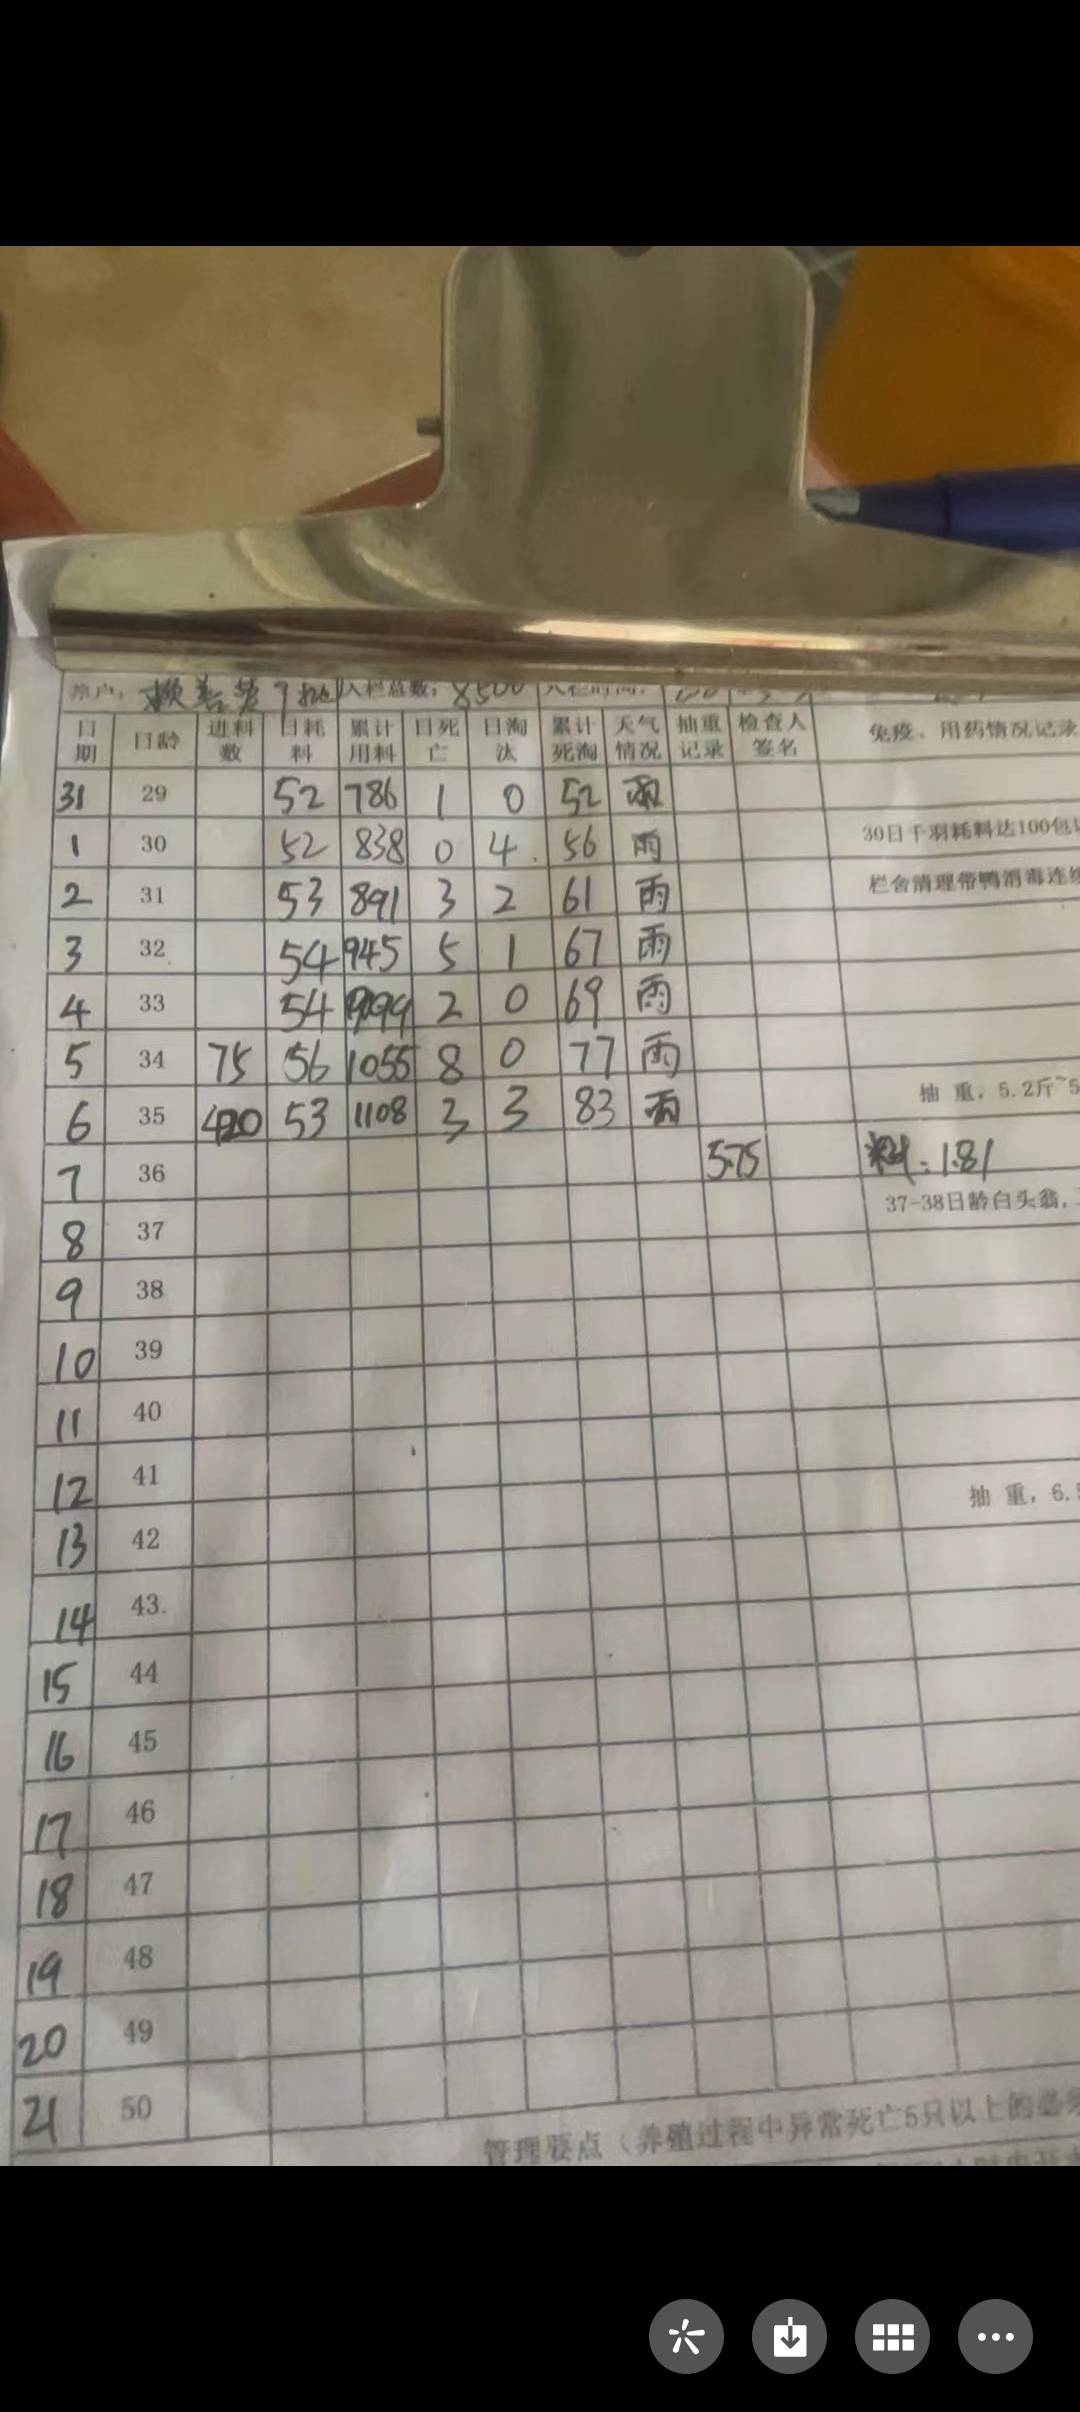 养户: 入栏总数: 8500 入栏时间:
日期 日龄 进料数 日耗料 累计用料 日死亡 日淘汰 累计死淘 天气情况 抽重记录 检查人签名 免疫、用药情况记录
31 29 52 786 1 0 52 雨
1 30 52 838 0 4 56 雨 30日千羽耗料达100包
2 31 53 891 3 2 61 雨 栏舍清理带鸭消毒连续
3 32 54 945 5 1 67 雨
4 33 54 999 2 0 69 雨
5 34 75 56 1055 8 0 77 雨
6 35 420 53 1108 3 3 83 雨 抽 重, 5.2斤~5
7 36 5.75 料: 1.81
8 37 37-38日龄白头翁,
9 38
10 39
11 40
12 41
13 42 抽 重, 6.5
14 43
15 44
16 45
17 46
18 47
19 48
20 49
21 50
管理要点(养殖过程中异常死亡5只以上的必须